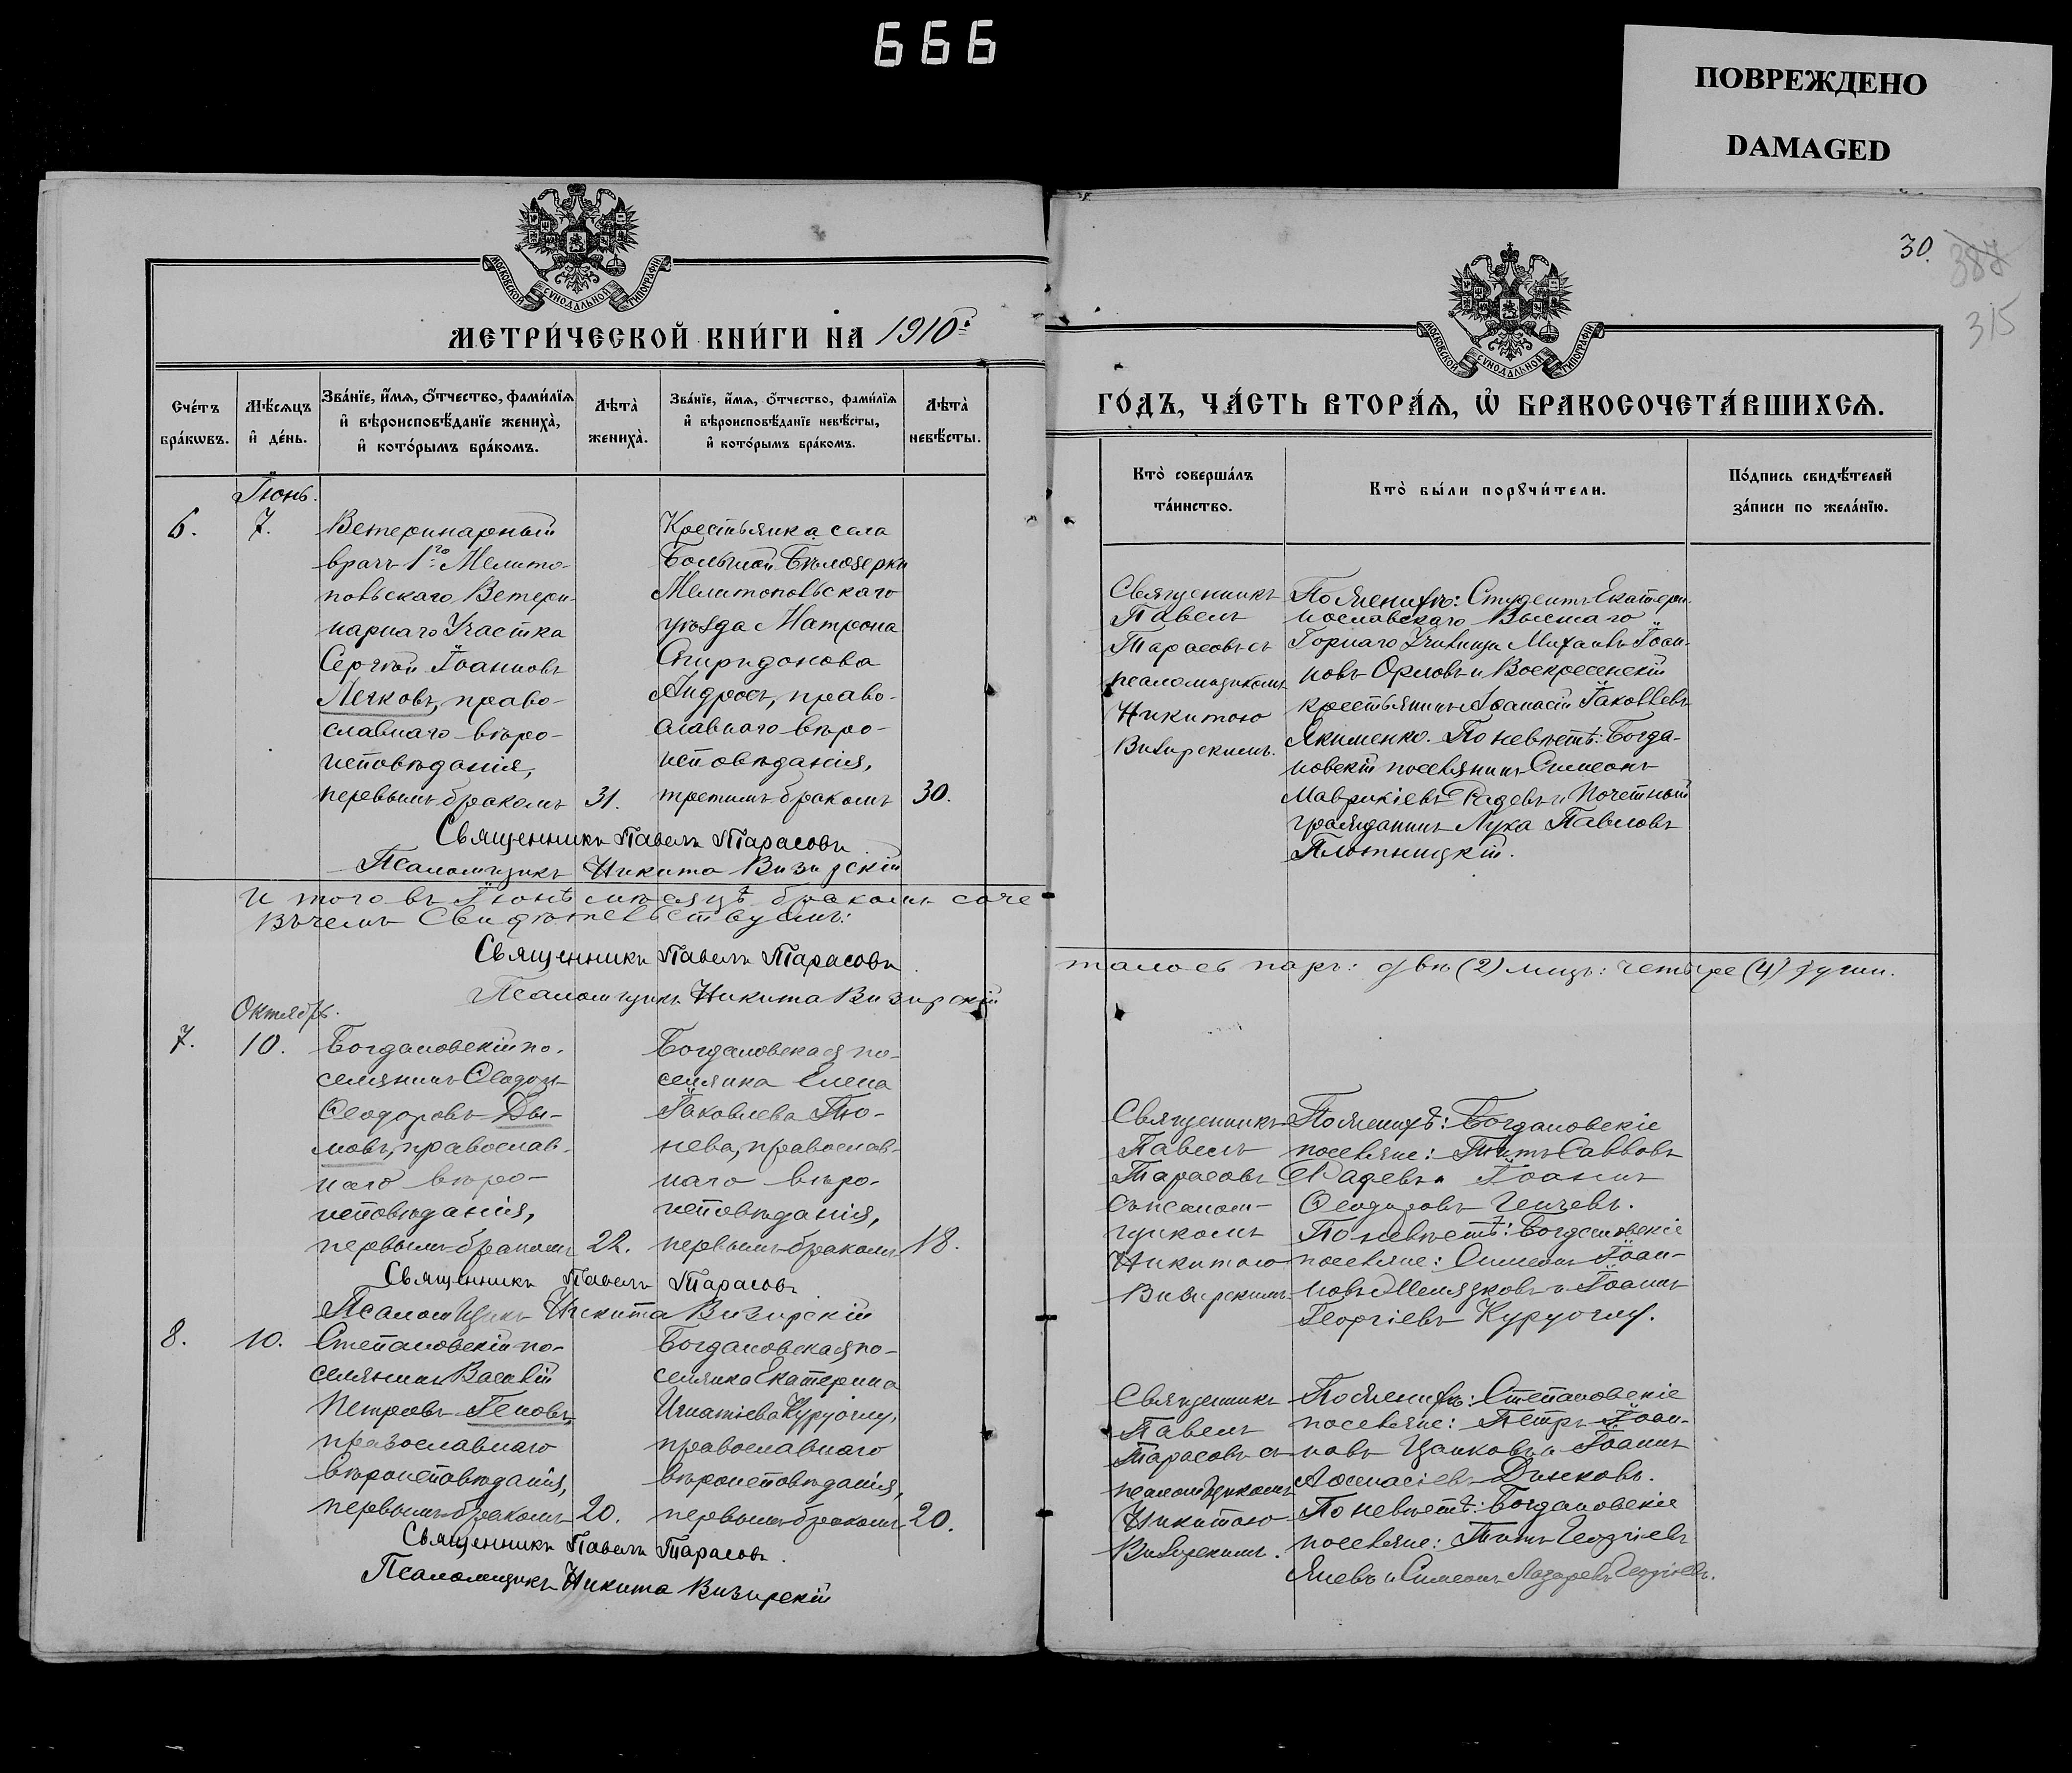 666
ПОВРЕЖДЕНО
DAMAGED
МОСКОВСКОЙ СѴНОДАЛЬНОЙ ТИПОГРАФІИ
МЕТРИ́ЧЕСКОЙ КНИ́ГИ НА 1910 г.
Сче́тъ бра́кѡвъ.
Мѣ́сяцъ и҆ де́нь.
Зва́нїе, и҆́мѧ, ѻ҆́тчество, фами́лїѧ
и҆ вѣроисповѣ́данїе жениха̀,
и҆ кото́рымъ бра́комъ.
Лѣта̀ жениха̀.
Зва́нїе, и҆́мѧ, ѻ҆́тчество, фами́лїѧ
и҆ вѣроисповѣ́данїе невѣ́сты,
и҆ кото́рымъ бра́комъ.
Лѣта̀ невѣ́сты.
Іюнь.
6.
7.
Ветеринарный
врачъ 1го Мелито-
польскаго Ветери-
нарнаго Участка
Сергѣй Іоанновъ
Легковъ, право-
славнаго вѣро-
исповѣданія,
первымъ бракомъ
31.
Крестьянка села
Большой Бѣлозерки
Мелитопольскаго
уѣзда Матрона
Спиридонова
Андрось, право-
славнаго вѣро-
исповѣданія,
третимъ бракомъ
30.
Священникъ Павелъ Тарасовъ
Псаломщикъ Никита Визирскій
И того въ Іюнѣ мѣсяцѣ бракомъ соче
Въ чемъ Свидѣтельствуемъ:
Священникъ Павелъ Тарасовъ.
Псаломщикъ Никита Визирскій
Октябрь.
7.
10.
Богдановскій по-
селянинъ Ѳеодоръ
Ѳеодоровъ Ды-
мовъ, православ-
наго вѣро-
исповѣданія,
первымъ бракомъ
22.
Богдановская по-
селянка Елена
Іаковлева Тю-
нева, православ-
наго вѣро-
исповѣданія,
первымъ бракомъ
18.
Священникъ Павелъ Тарасовъ
Псаломщикъ Никита Визирскій
8.
10.
Степановскій по-
селянинъ Василій
Петровъ Геновъ,
православнаго
вѣроисповѣданія,
первымъ бракомъ
20.
Богдановская по-
селянка Екатерина
Игнатіева Куруоглу,
православнаго
вѣроисповѣданія,
первымъ бракомъ
20.
Священникъ Павелъ Тарасовъ.
Псаломщикъ Никита Визирскій
30.
387
315
МОСКОВСКОЙ СѴНОДАЛЬНОЙ ТИПОГРАФІИ
ГО́ДЪ, ЧА́СТЬ ВТОРА́Ѧ, Ѡ҆ БРАКОСОЧЕТА́ВШИХСѦ.
Кто̀ соверша́лъ
та́инство.
Кто̀ бы́ли порꙋчи́тели.
По́дпись свидѣ́телей
за́писи по жела́нїю.
Священникъ
Павелъ
Тарасовъ съ
псаломщикомъ
Никитою
Визирскимъ.
По женихѣ: Студентъ Екатери-
нославскаго Высшаго
Горнаго Училища Михаилъ Іоан-
новъ Орловъ и Воскресенскій
крестьянинъ Аѳанасій Іаковлевъ
Якименко. По невѣстѣ: Богда-
новскій поселянинъ Симеонъ
Маврикіевъ Радевъ и Почетный
гражданинъ Лука Павловъ
Плотницкій.
талось паръ: двѣ (2) лицъ: четыре (4) души.
Священникъ
Павелъ
Тарасовъ
съ псалом-
щикомъ
Никитою
Визирскимъ.
По женихѣ: Богдановскіе
поселяне: Титъ Савовъ
Радевъ и Іоаннъ
Ѳеодоровъ Генчевъ.
По невѣстѣ: Богдановскіе
поселяне: Симеонъ Іоан-
новъ и Іоаннъ
Георгіевъ Куруоглу.
Священникъ
Павелъ
Тарасовъ съ
псаломщикомъ
Никитою
Визирскимъ.
По женихѣ: Степановскіе
поселяне: Петръ Іоан-
новъ Цанковъ и Іоаннъ
Аѳанасіевъ Динковъ.
По невѣстѣ: Богдановскіе
поселяне: Титъ Георгіевъ
Яневъ и Симеонъ Лазаревъ Георгіевъ.